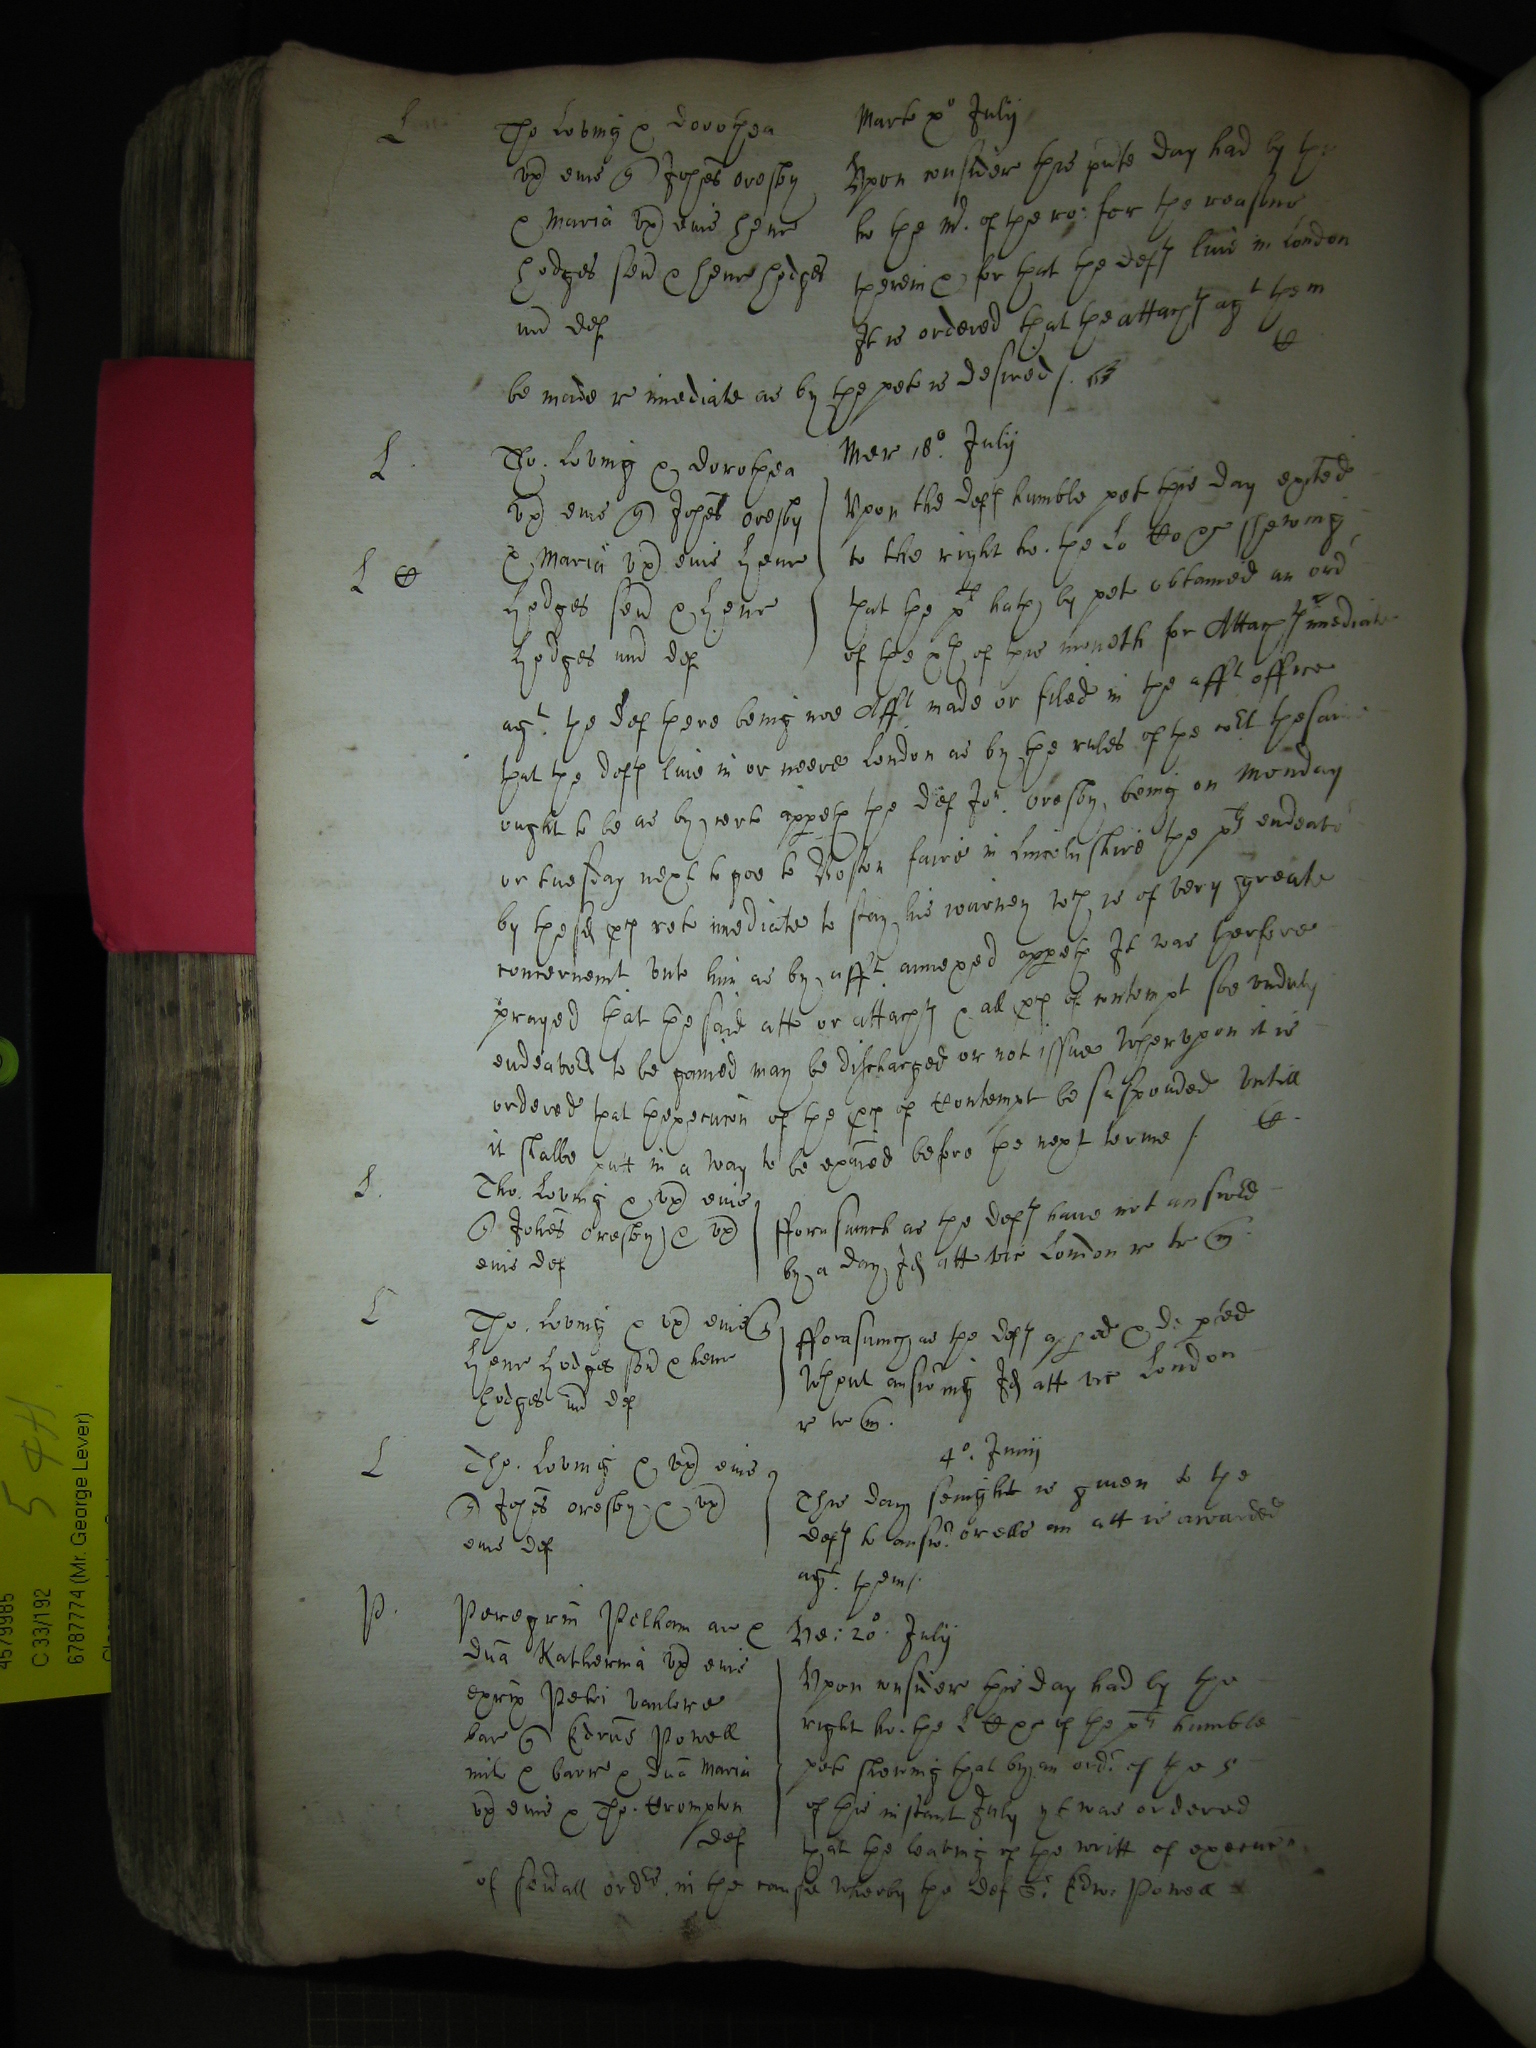 L
Tho Loving & Dorothea
ux eius q Johes Oresby
& Maria ux eius Henr
Hodges sen & Henr Hodges
iun def
Marte xº July
Upon consider this pnte day had by the
ho the Mr. of the ro: for the reasons
therein & for that the defts live in London
It is ordered that the attachmt agt them
be made r imediate as by the pet is desired /.
L.
Tho. Loving & Dorothea
ux eius q Johes Oresby
& Maria ux eius Henr
Hodges sen & Henr
Hodges iun def
Mer 18º. July
Upon the defts humble pet this day exited
to the right ho. the Lo shewing
that the pt hath by pet obtained an ord
of the xth of this moneth for Attachmt imediate
agt. the def there being noe Afft made or filed in the afft office
that the defts live in or neere London as by the rules of the Cort the same
ought to be as by cert appeth the def Jon. Oresby being on Monday
or tuesday next to goe to Boston faire in Lincolnshire the pts endeavo
by these retor imediate to stay his iourney wch is of very greate
concernemt unto him as by afft. annexed appeth It was therfore
prayed that the said att or attachmt & all of contempt soe unduly
endeavored to be gained may be discharged or not issue Wherupon it is
ordered that thexecucon of the of Contempt be suspended untill
it shalbe putt in a way to be exaied before the next terme /.
L.
Tho. Loving & ux eius
q Johes Oresby & ux
eius def
fforasmuch as the defts have not answed
by a day Id att vic London r tr m.
L
Tho. Loving & ux eius q
Henr Hodges sen & henr
Hodges iun def
fforasmuch as the defts apped & depted
wthout answring Id att vic London
r tr m.
L
Tho. Loving & ux eius
q Johes Oresby & ux
eius def
4º. Junij
This day senight is given to the
defts to answr. or ells an att is awarded
agt. them /.
P.
Peregrin Pelham ar &
dna Katherina ux eius
exrix Petri Vanlore
bar q Edrus Powell
mil & barr & dna Maria
ux eius & Tho. Crompton
def
Ve: 20º. July
Upon consider this day had by the
right ho. the L of the pts humble
pet shewing that by an ordr. of the 5
of this instant July yt was ordered
that the leaving of the writt of execucon
of sevall ordrs. in the cause wherby the def Sr. Edw. Powell
4579985
C 33/192
6787774 (Mr. George Lever)